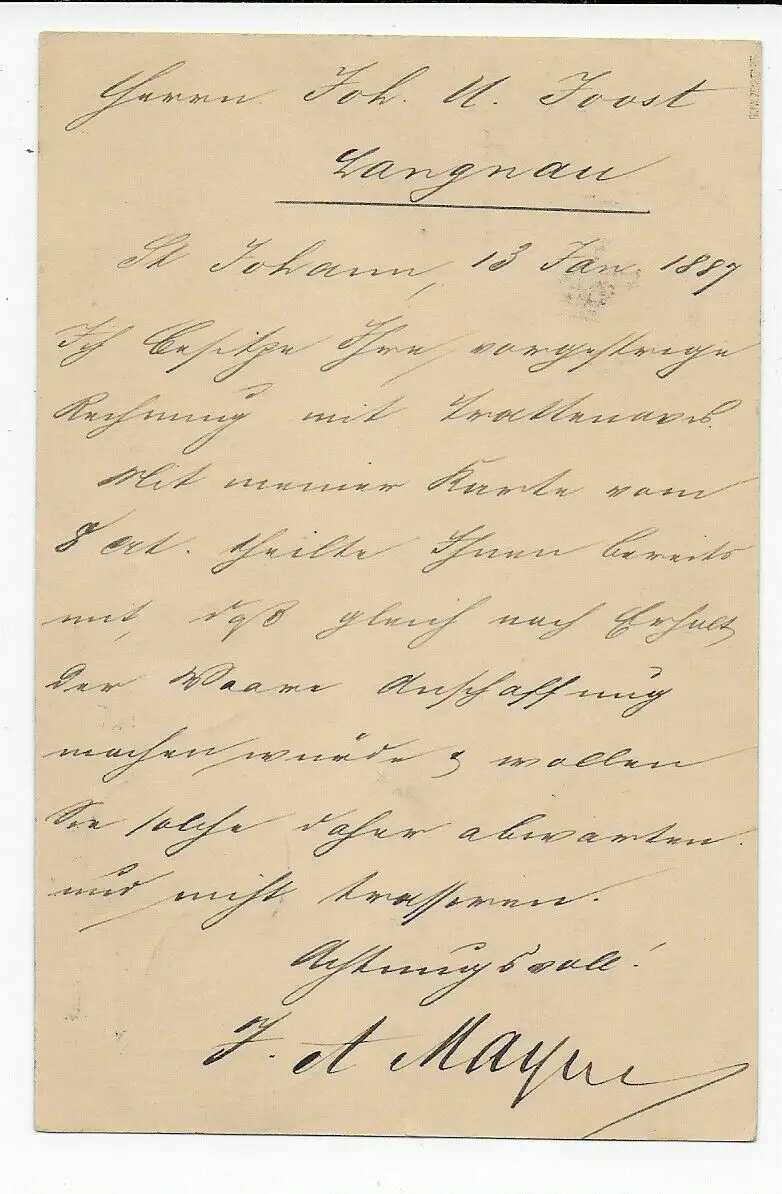 Herrn Joh. U. Joost
Langnau
St Johann, 13 Jan. 1887
Ich besitze Ihre vorgestrige
Rechnung mit Trattenavis.
Mit meiner Karte vom
8 ct. theilte Ihnen bereits
mit, daß gleich nach Erhalt
der Waare Anschaffung
machen würde & wollen
Sie solche daher abwarten
und nicht trassiren.
Achtungsvoll!
J. A Mayer